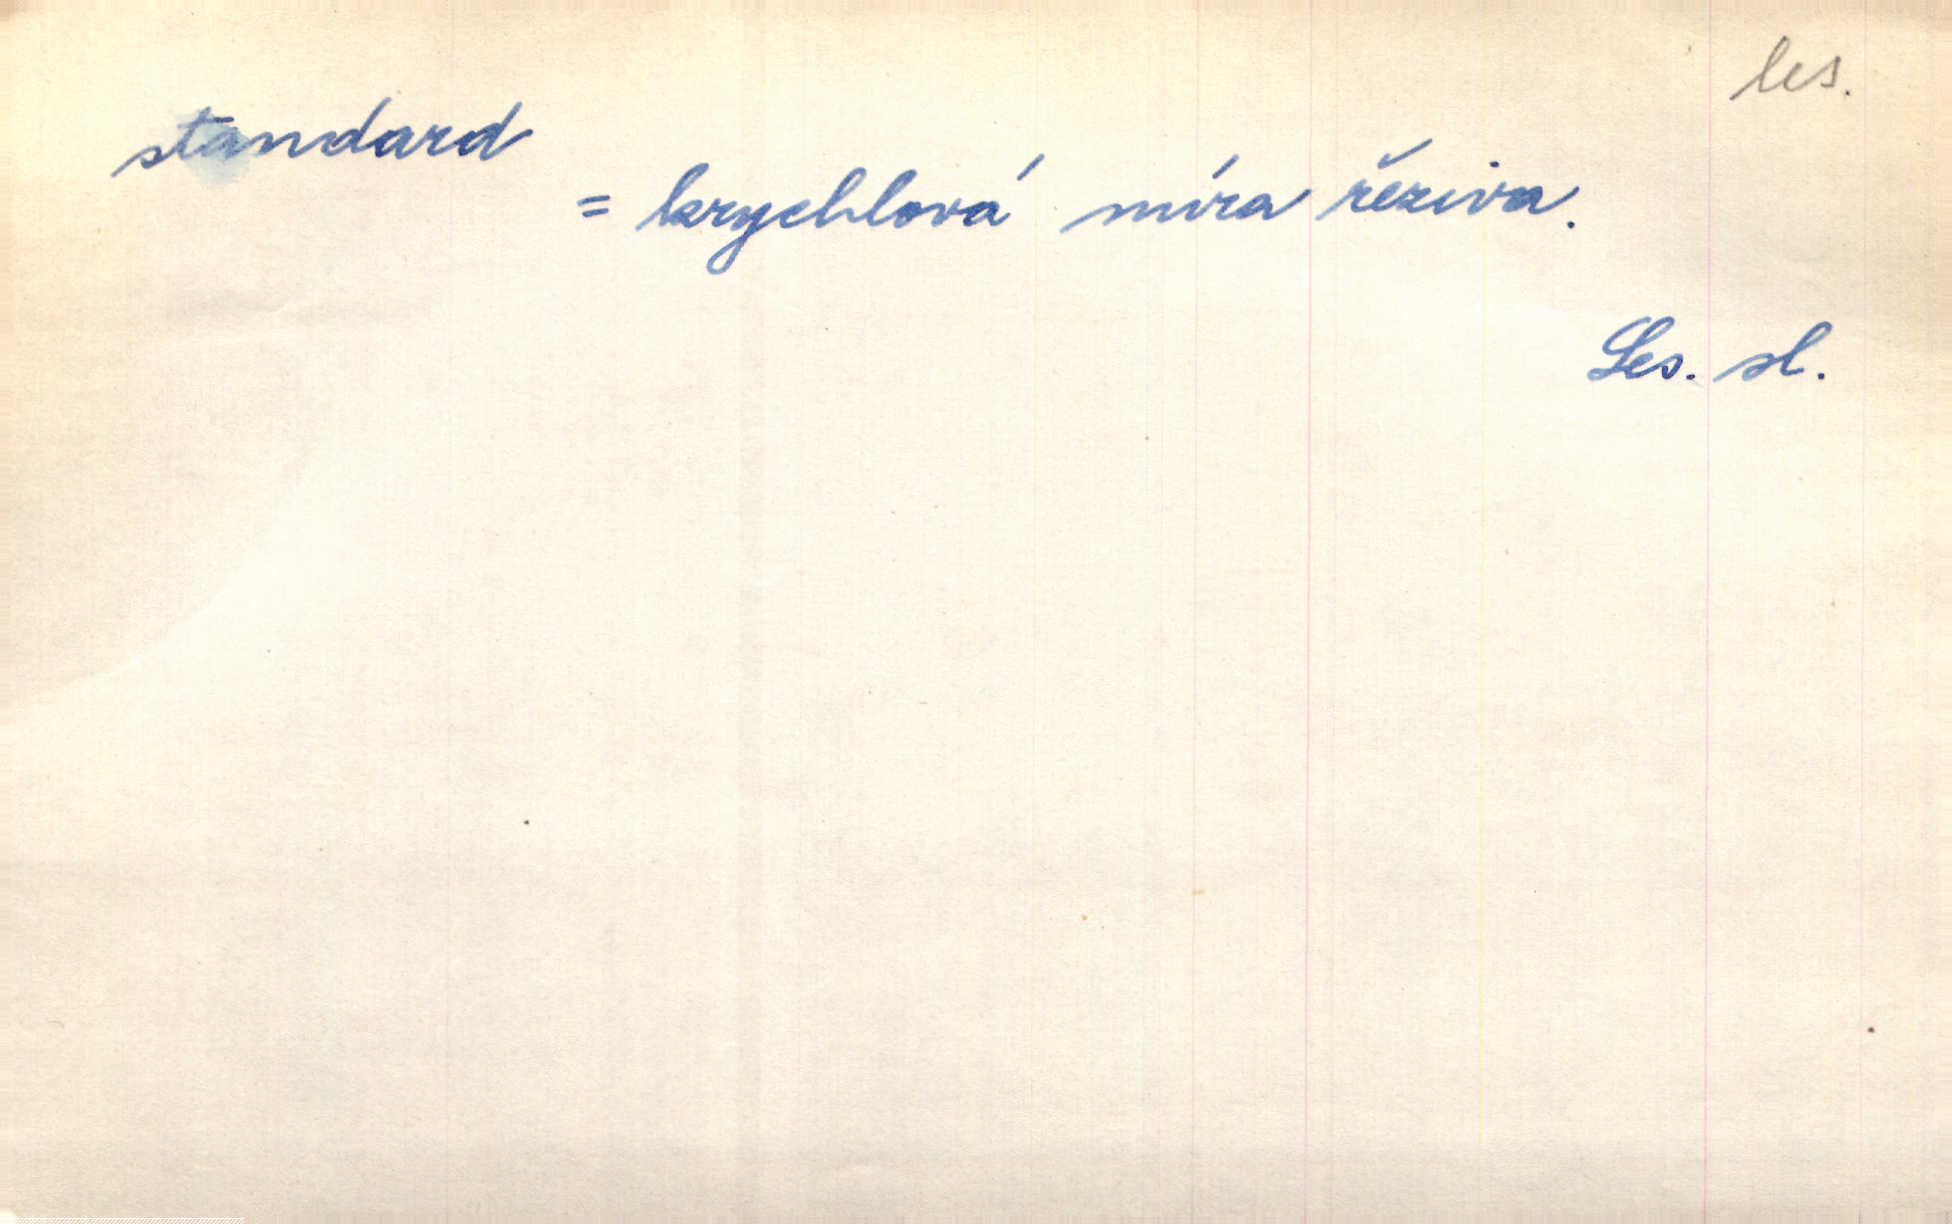 les.
standard
= krychlová míra řeziva.
Les. sl.